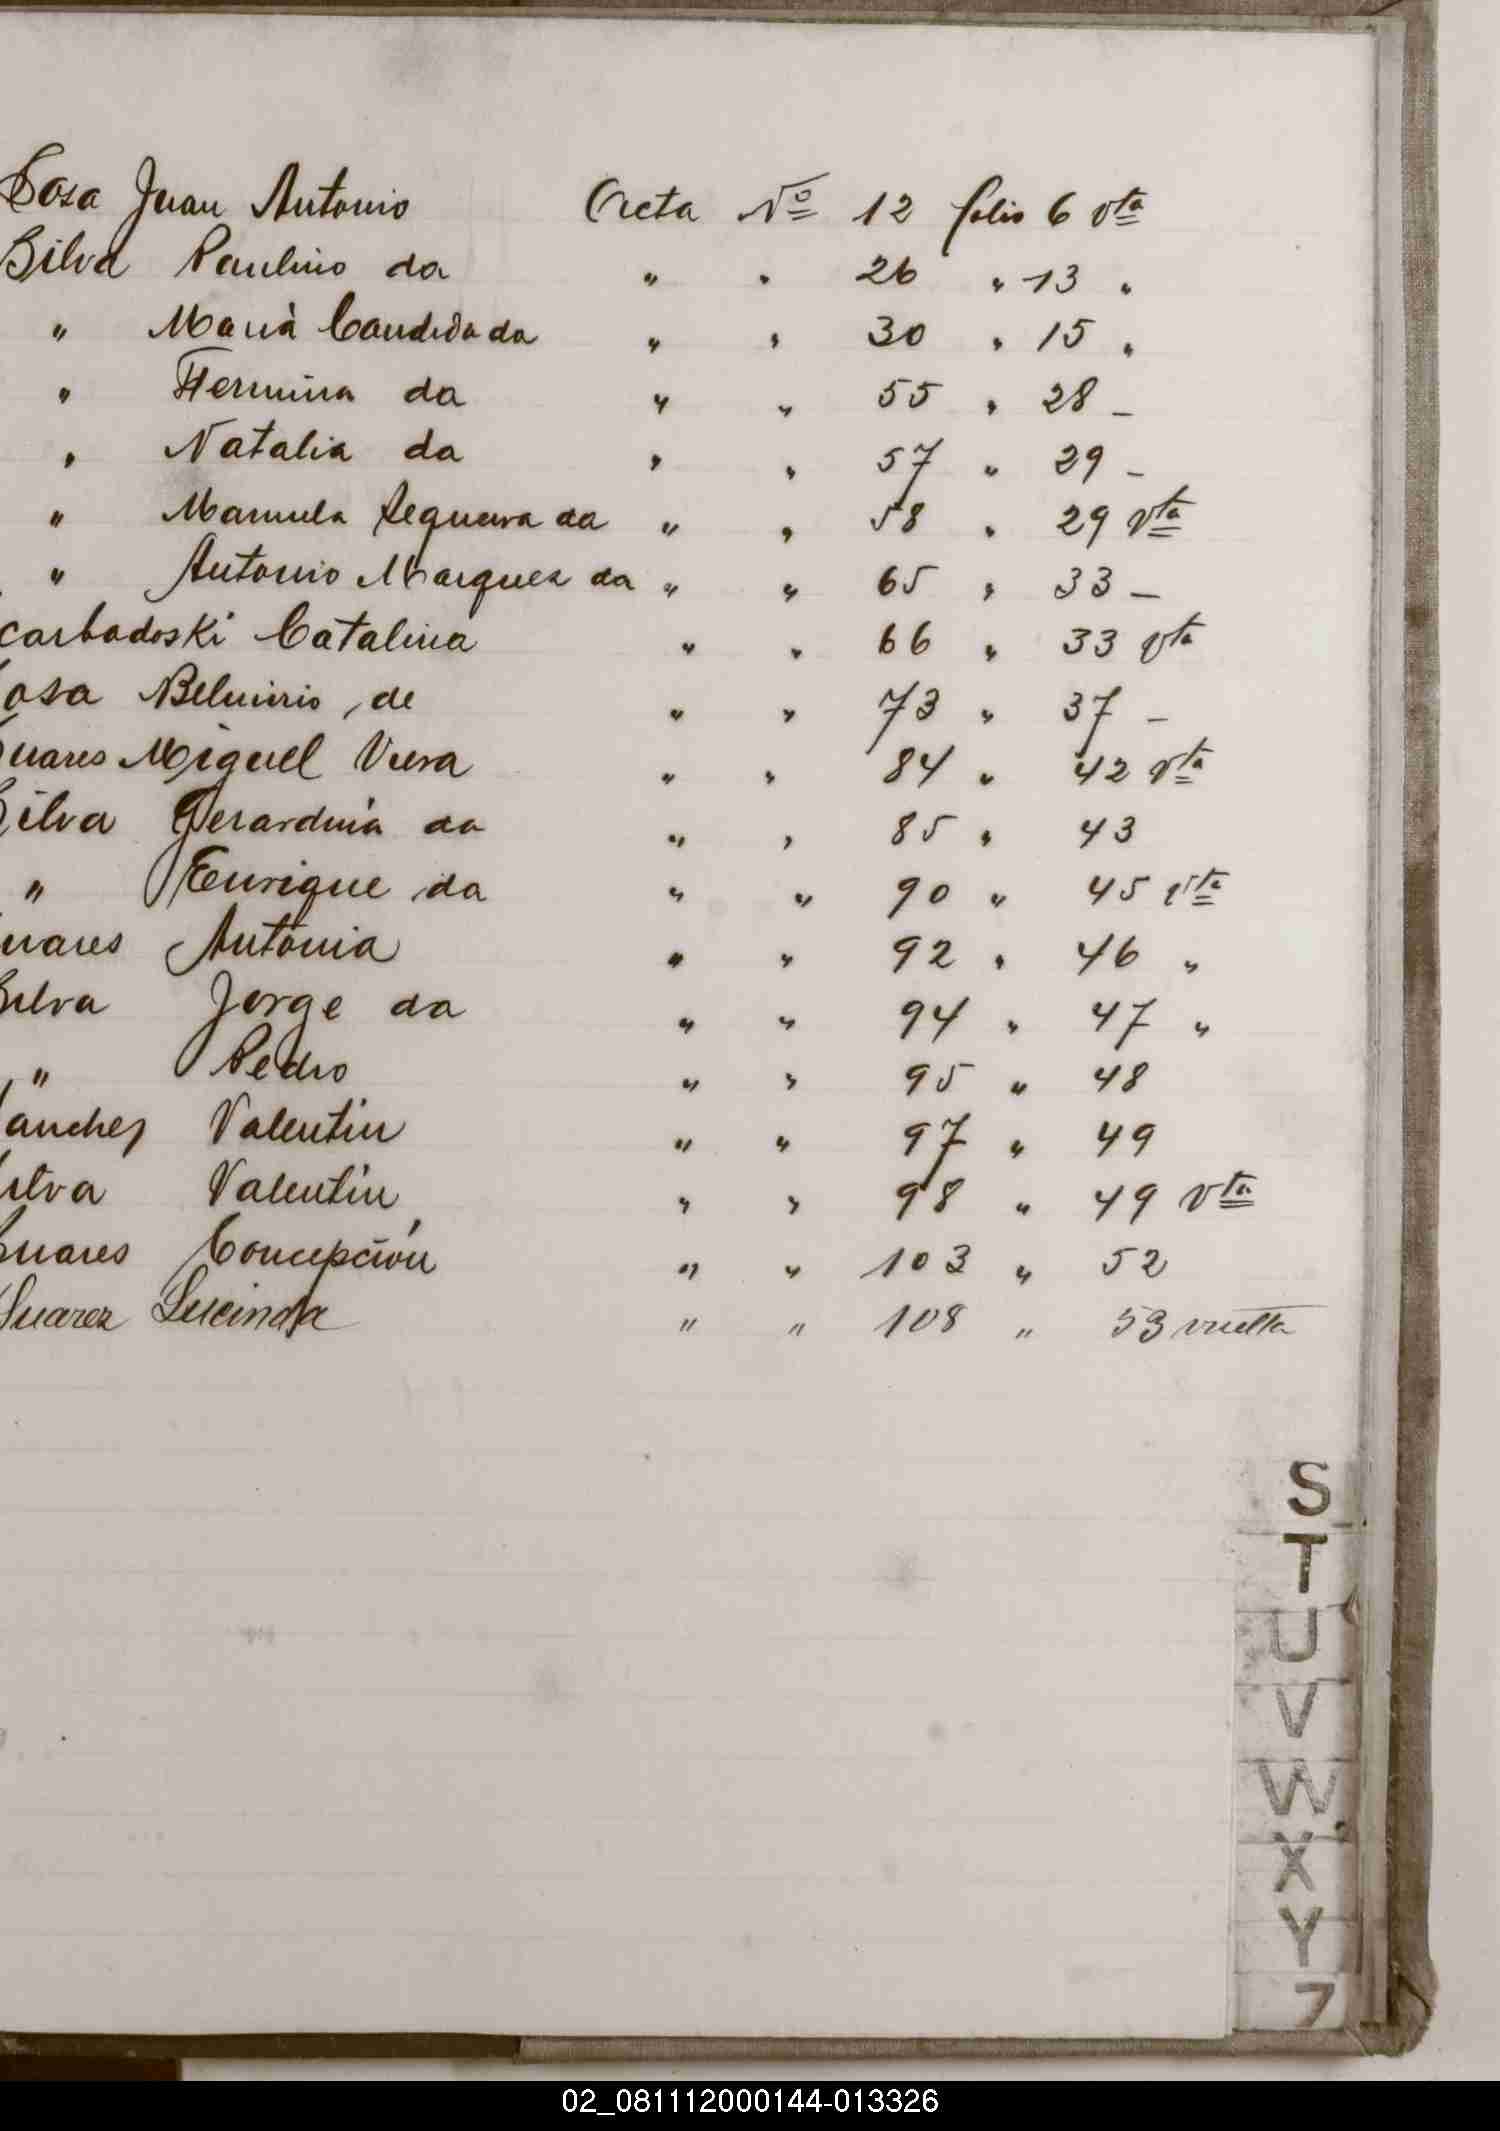 Sosa Juan Antonio Acta Nº 12 folio 6 vta
Silva Paulino da " " 26 " 13 "
" Maria Candida da " " 30 " 15 "
" Hermina da " " 55 " 28 -
" Natalia da " " 57 " 29 -
" Manuela Sequeira da " " 58 " 29 vta
" Antonio Marquez da " " 65 " 33 -
carbadoski Catalina " " 66 " 33 vta
osa Belmirio de " " 73 " 37 -
uares Miguel Viera " " 84 " 42 vta
Silva Gerardina da " " 85 " 43
" Enrique da " " 90 " 45 vta
uares Antonia " " 92 " 46 "
Silva Jorge da " " 94 " 47 "
" Pedro " " 95 " 48
anchez Valentin " " 97 " 49
ilva Valentin " " 98 " 49 vta
Suares Concepción " " 103 " 52
Suarez Lucinda " " 108 " 53 vuelta
S
T
U
V
W
X
Y
Z
02_081112000144-013326